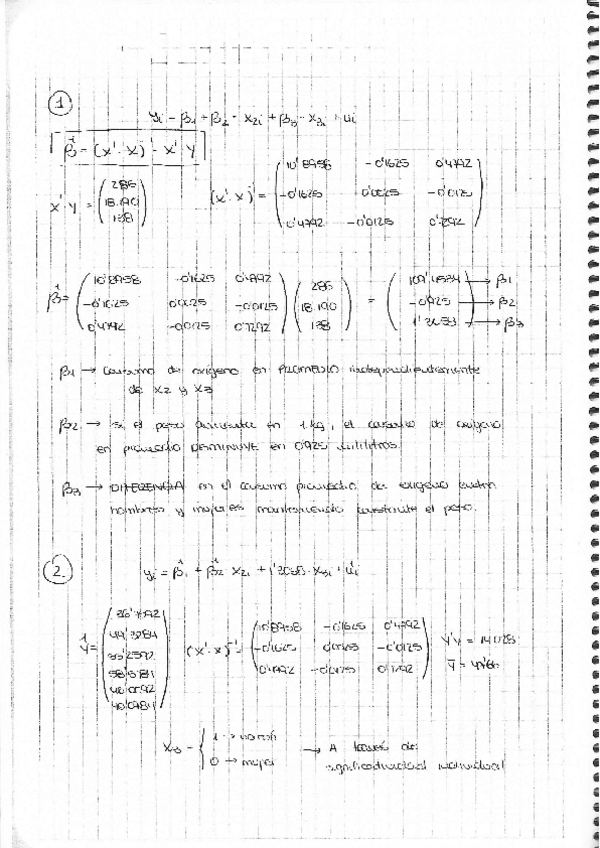 1
yi = β1 + β2 · x2i + β3 · x3i + ui
β̂ = (x' · x)⁻¹ · x' · y
x' · y = (286 18.190 138) (x' · x)⁻¹ = (10'8958 -0'1625 0'4792
-0'1625 0'0025 -0'0125
0'4792 -0'0125 0'7292)
β̂ = (10'8958 -0'1625 0'4792 -0'1625 0'0025 -0'0125 0'4792 -0'0125 0'7292) (286 18.190 138) = → β1 → β2 → β3
β1 → Consumo de oxígeno en PROMEDIO independientemente
de x2 y x3
β2 → Si el peso aumenta en 1 kg, el consumo de oxígeno
en promedio DISMINUYE en 0'925 mililitros.
β3 → DIFERENCIA en el consumo promedio de oxígeno entre
hombres y mujeres manteniendo constante el peso.
2.
yi = β̂1 + β̂2 x2i + 1'2083 · x3i + ûi
ŷ = (x' · x)⁻¹ = (10'8958 -0'1625 0'4792
-0'1625 0'0025 -0'0125
0'4792 -0'0125 0'7292) y'y = 14028
x3 = { 1 → varón
0 → mujer → A través de
significatividad individual